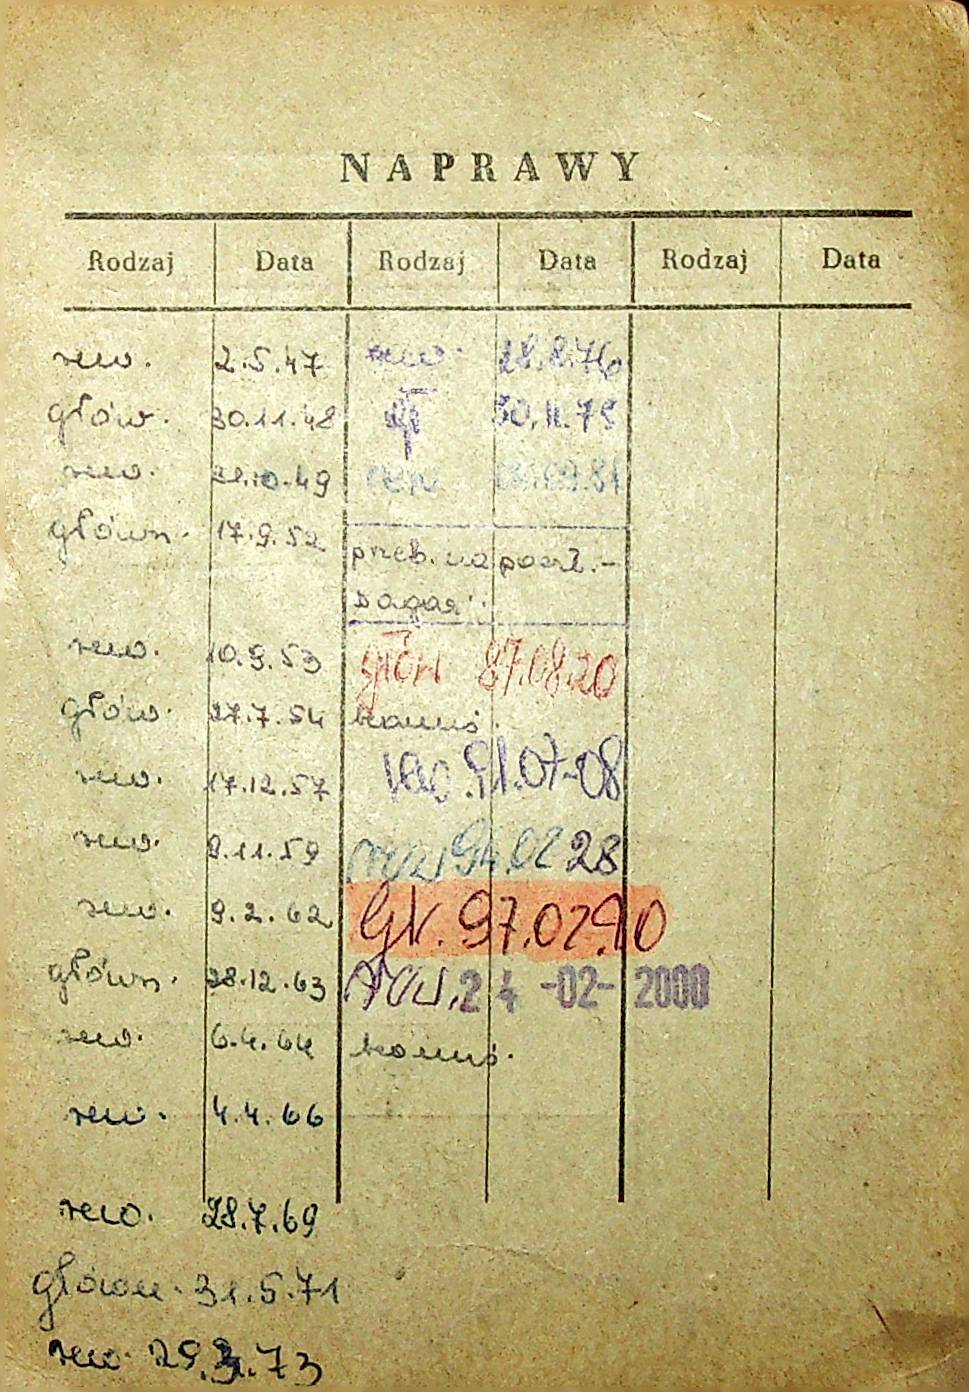 NAPRAWY
Rodzaj Data Rodzaj Data Rodzaj Data
rew. 2.5.47
głów. 30.11.48
rew. 49
główn. 17.9.52
rew. 10.9.53
głów. 27.7.54
rew. 17.12.57
rew. 9.11.59
rew. 9.2.62
główn. 28.12.63
rew. 6.4.64
rew. 4.4.66
rew. 28.7.69
główn. 31.5.71
rew. 73
rew. 28.8.76
30.11.79
rew
przeb. na
głów 87.08.20
rew. 91.07-08
rew 94.02 28
Gł. 97.02
rew. 24 -02- 2000